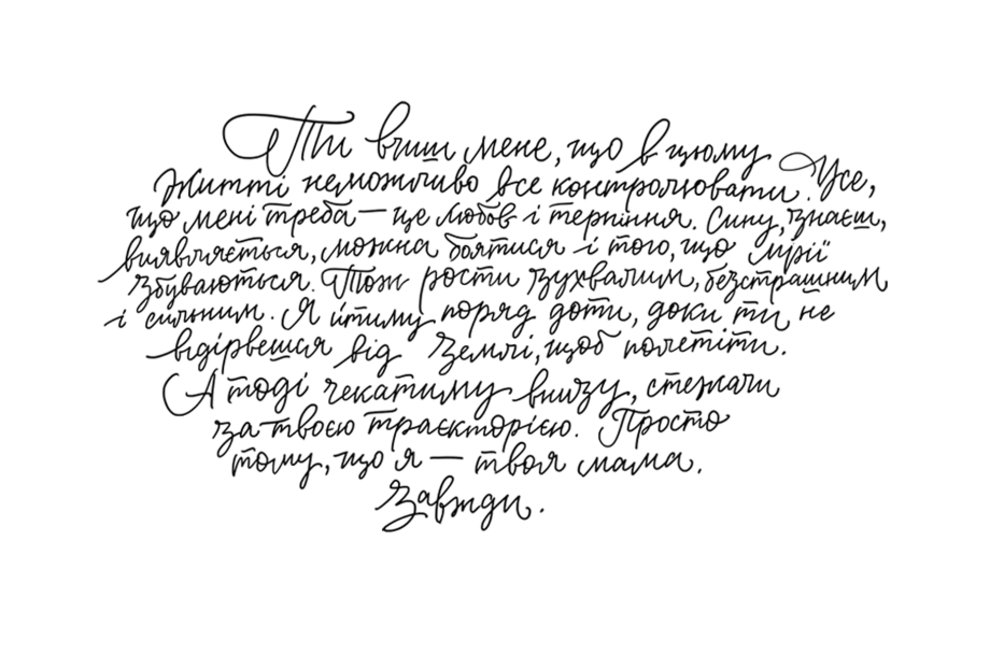 Ти вчиш мене, що в цьому
житті неможливо все контролювати. Усе,
що мені треба — це любов і терпіння. Сину, знаєш,
виявляється, можна боятися і того, що мрії
збуваються. Тож рости зухвалим, безстрашним
і сильним. Я йтиму поряд доти, доки ти не
відірвешся від землі, щоб полетіти.
А тоді чекатиму внизу, стежачи
за твоєю траєкторією. Просто
тому, що я — твоя мама.
Завжди.